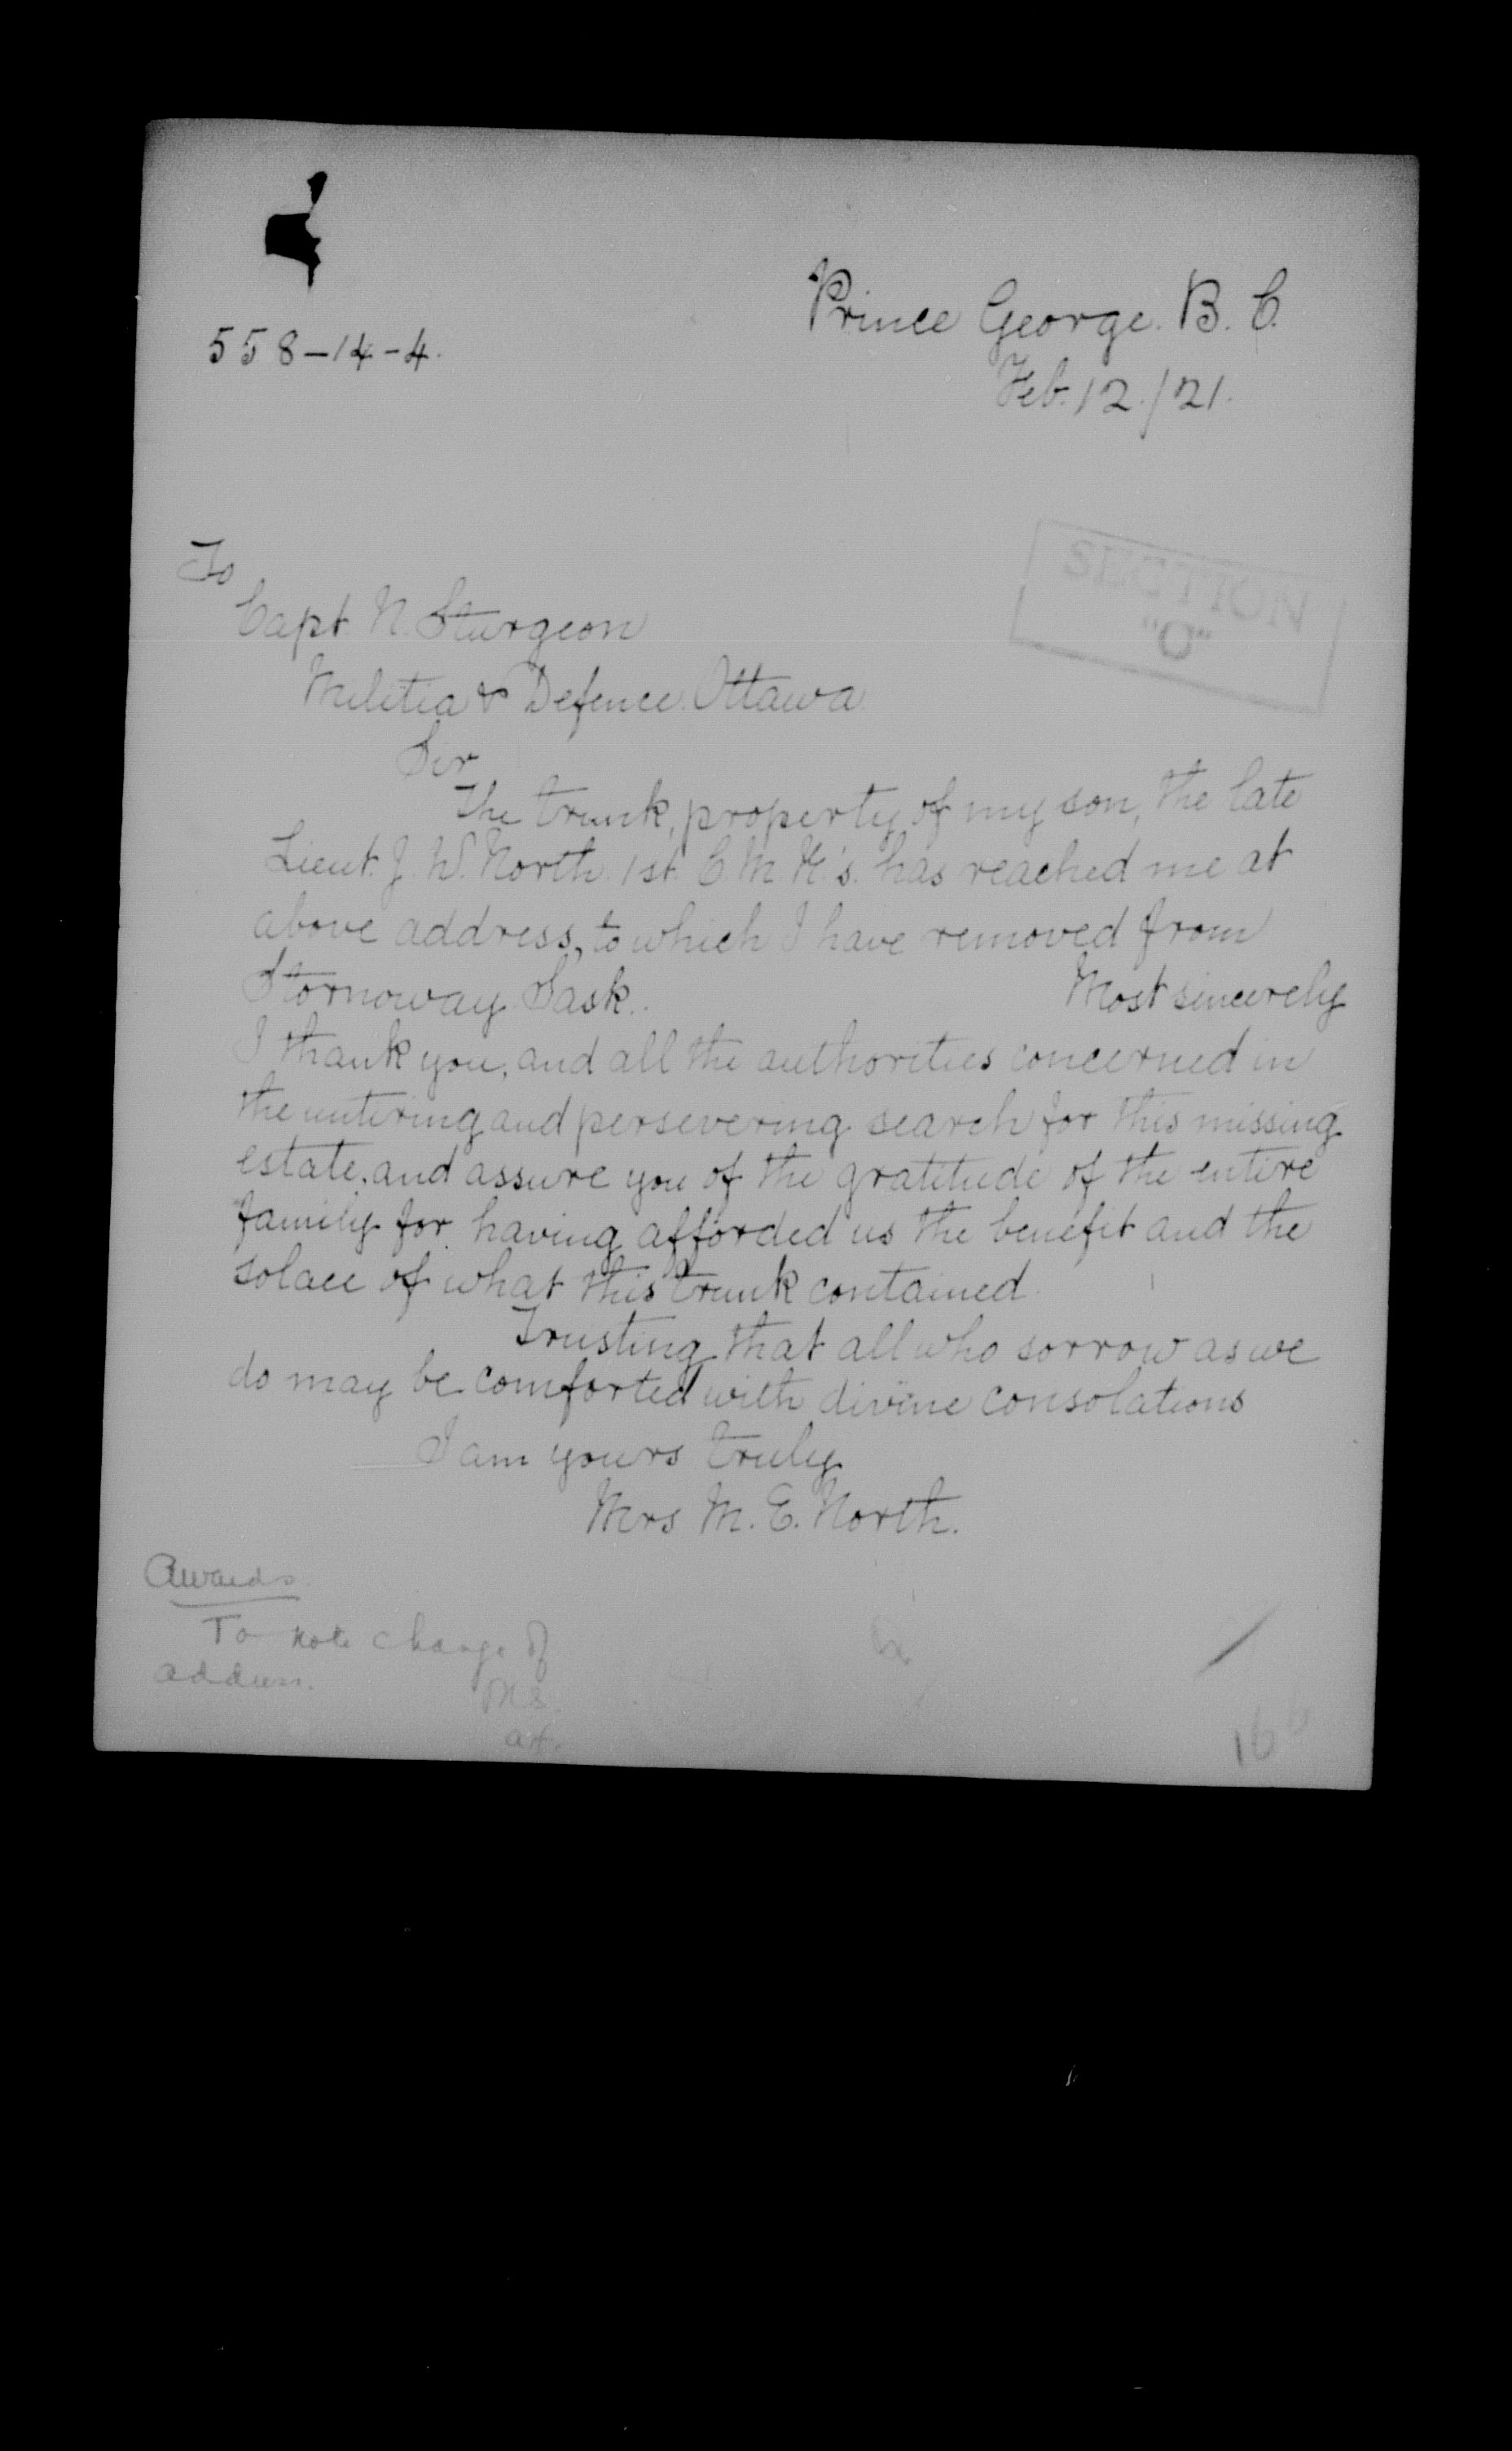 Prince George. B. C.
558-14-4.
Feb. 12./21.
SECTION
"O"
To
Capt N. Sturgeon
Militia & Defence. Ottawa.
Sir
The trunk, property of my son, the late
Lieut. J. W. North. 1st. C. M. R's. has reached me at
above address, to which I have removed from
Stornoway Sask.. Most sincerely
I thank you, and all the authorities concerned in
the untiring and persevering search for this missing
estate, and assure you of the gratitude of the entire
family for having afforded us the benefit and the
solace of what this trunk contained.
Trusting that all who sorrow as we
do may be comforted with divine consolations
I am yours truly
Mrs M. E. North.
Awards.
To note change of
address.